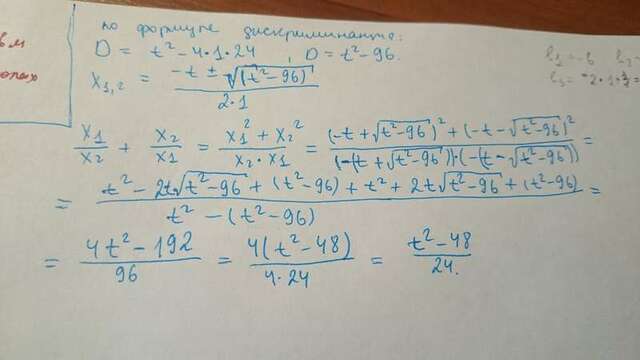 по формуле дискриминанта:
D = t² - 4·1·24, D = t² - 96.
x₁,₂ = (-t ± √(t² - 96)) / (2·1)
x₁/x₂ + x₂/x₁ = (x₁² + x₂²) / (x₂·x₁) = ((-t + √(t² - 96))² + (-t - √(t² - 96))²) / ((-t + √(t² - 96))·(-t - √(t² - 96))) =
= (t² - 2t√(t² - 96) + (t² - 96) + t² + 2t√(t² - 96) + (t² - 96)) / (t² - (t² - 96)) =
= (4t² - 192) / 96 = 4(t² - 48) / (4·24) = (t² - 48) / 24.